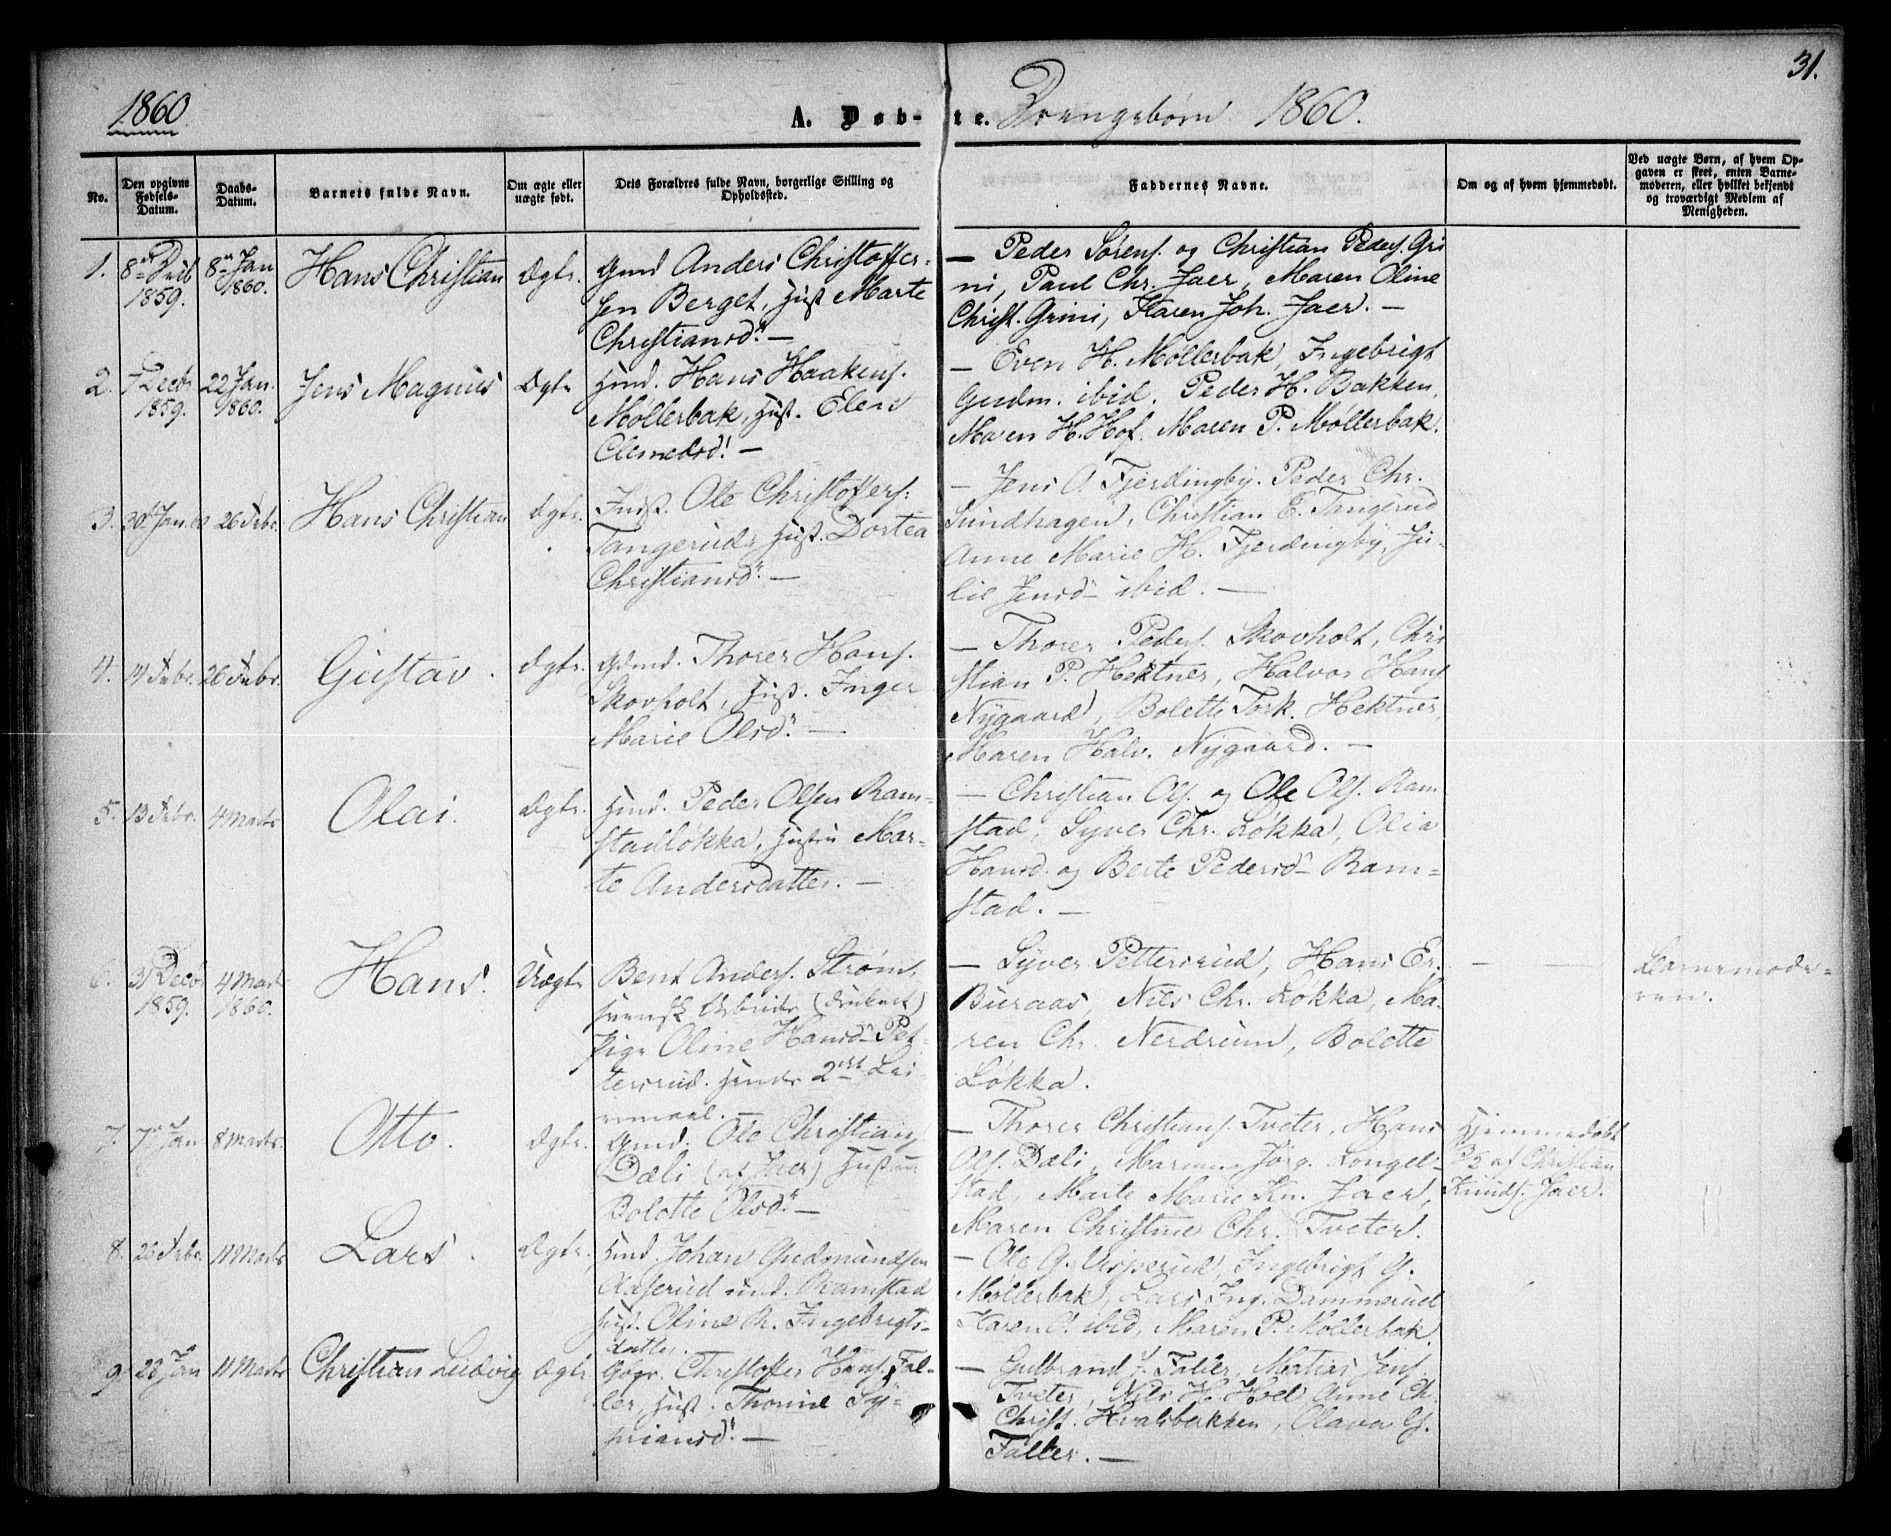 31.
1860
A. Døb-te. Drengebørn 1860.
No.
Den opgivne Fødsels-Datum.
Daabs-Datum.
Barnets fulde Navn.
Om ægte eller uægte født.
Dets Forældres fulde Navn, borgerlige Stilling og Opholdssted.
Faddernes Navne.
Om og af hvem hjemmedøbt.
Ved uægte Børn, af hvem Op-
gaven er skeet, enten Barne-
moderen, eller hvilket bekjendt
og troværdigt Medlem af
Menigheden.
1. 1859. 8 Jan 1860. Hans Christian Ægte.
Gmd Anders Christoffer-
sen Berget, Hust Marte
Christiansd. —
— Peder Sørens. og Christian Peders. Gri
ni, Paul Chr. Jaer, Maren Oline
Christ. Grini, Karen Joh. Jaer. —
2. 7 Decbr 1859. 22 Jan. 1860. Jens Magnus Ægte
Hmd. Hans Haakens.
Møllerbak, Hust. Elen
Clemetsd! —
— Even H. Møllerbak, Ingebrigt
Gudm. ibid. Peder H. Bakken,
Maren H. Hof. Maren P. Møllerbak.
3. 30 Jan. 60 26 Febr. Hans Christian Ægte.
Indst. Ole Christoffers.
Tangerud, Hust. Dortea
Christiansd. —
— Jens O. Fjerdingby. Peder Chr.
Sundhagen, Christian E. Tangerud
Anne Marie H. Fjerdingby, Ju-
lie Jensd ibid. —
4. 26 Febr. Gustav. Ægte.
Gdmd. Thorer Hans.
Skovholt, Hust. Inger
Marie Olsd. —
— Thorer Peders. Skovholt, Chri
stian P. Hektner, Halvor Hans
Nygaard, Bolette Tork. Hektner,
Maren Halv. Nygaard. —
5. 13 Febr. 4 Marts Olai. Ægte.
Hmd. Peder Olsen Ram-
stadløkka, Hustru Mar-
te Andersdatter. —
— Christian Ols. og Ole Ols. Ram
stad, Syver Chr. Løkka, Olia
Hansd. og Berte Pedersd Ram-
stad. —
6. 31 Decbr 1859. 4 Marts 1860. Hans. Uægte
Bent Anders. Strøm,
svensk Arbeider
Pige Oline Hansd Pet-
tersrud. Hendes 2det Lei-
ermaal. —
— Syver Pettersrud, Hans Er.
Buraas, Nils Chr. Løkka, Ma-
ren Chr. Nerdrum, Bolette
Løkka.
Barnemode-
ren.
7. 7 Jan 8 Marts. Otto. Ægte.
Gmd. Ole Christians
Dæli (af Jaer) Hustru
Bolette Olsd. —
— Thorer Christians. Tveter, Hans
Ols. Dæli, Marinus Jørg. Longel-
stad, Marte Marie Kn. Jaer,
Maren Christine Chr. Tveter.
Hjemmedøbt
af Christian
Knuds. Jaer.
8. 26 Febr. 11 Marts Lars. Ægte.
Hmd. Johan Gudmundsen
Asperud und. Ramstad
Hust. Oline R. Ingebrigts-
datter.
— Ole G. Asperud, Ingebrigt G.
Møllerbak, Lars Ing. Dammerud
Karen O. ibid, Maren P. Møllerbak.
9. 22 Jan 11 Marts Christian Ludvig Ægte
Gbgr. Christoffer Hans. Fal-
ler, Hust. Thonine Sy-
priansd. —
— Gulbrand J. Faller, Matias Jens
Tveter, Nils H. Hoel Anne Ch.
Christ. Hvalsbakken, Olava G.
Faller. —